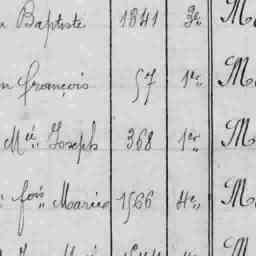 n Baptiste 1841 3e M
n françois 57 1er M
Mie Joseph 368 1er M
fois Marie 1566 4e M